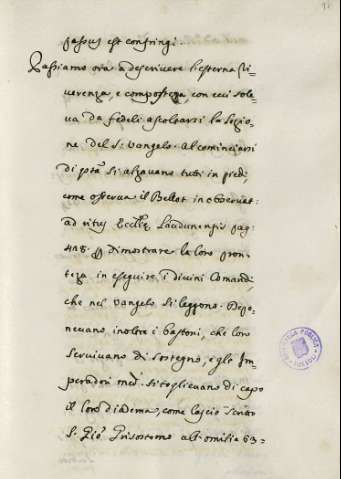 passus est confringi.
Passiamo ora a descrivere l'esterna ri=
verenza, e compostezza, con cui sole=
va da fedeli ascoltarsi la lezio=
ne del S. Vangelo. Al cominciarsi
di pta si alzavano tutti in piedi,
come osserva il Bellot in observat:
ad ritus Eccliæ Laudunensis pag:
418. p dimostrare la loro pron=
tezza in eseguire i divini Comandi,
che nel Vangelo si leggono. Depo=
nevano, inoltre i bastoni, che loro
servivano di sostegno, e gl'Im=
peradori med. si toglievano di capo
il loro diadema, come lasciò scritto
S. Gio. Grisostomo all'omilia 63=